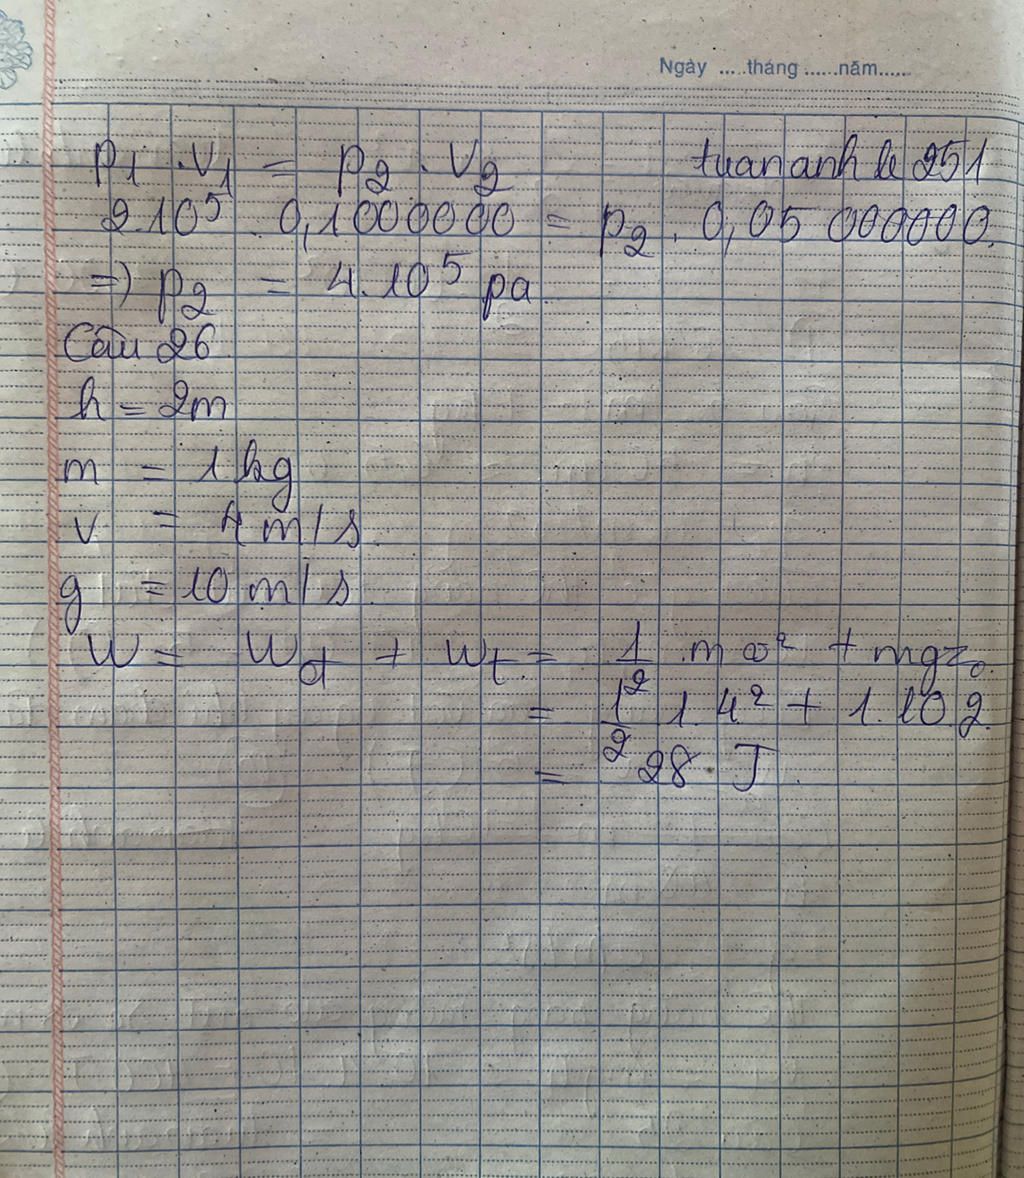 Ngày .....tháng ......năm......
P1 . V1 = P2 . V2 tuananh le 251
2.10⁵ . 0,1000000 = P2 . 0,05 000000.
=) P2 = 4.10⁵ pa
Câu 26
h = 2m
m = 1 kg
v = 4 m/s.
g = 10 m/s.
W = Wđ + Wt = 1/2 .mv² + mgz₀
= 1/2 1.4² + 1.10.2
= 28 J